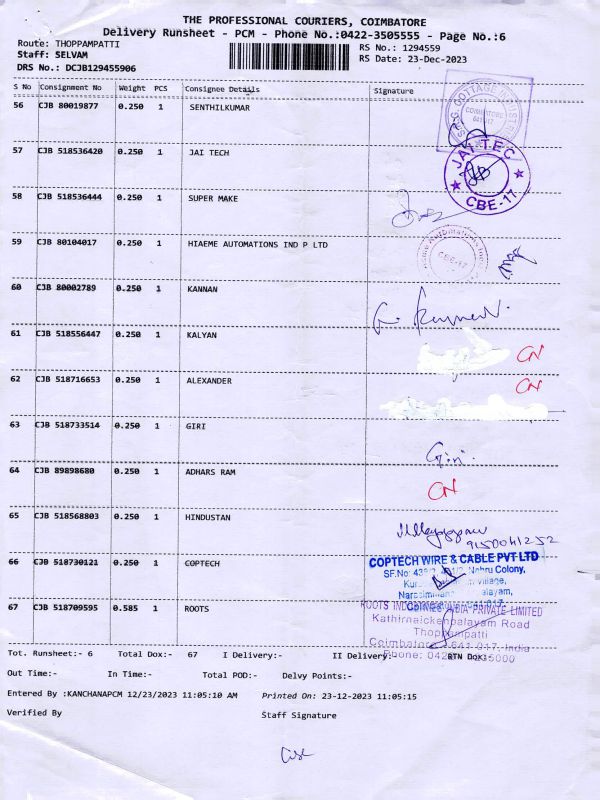 THE PROFESSIONAL COURIERS, COIMBATORE
Delivery Runsheet - PCM - Phone No.:0422-3505555 - Page No.:6
Route: THOPPAMPATTI
RS No.: 1294559
Staff: SELVAM
RS Date: 23-Dec-2023
DRS No.: DCJB129455906
S No Consignment No Weight PCS Consignee Details Signature
56 CJB 80019877 0.250 1 SENTHILKUMAR
COTTAGE
COIMBATORE
641 017
57 CJB 518536420 0.250 1 JAI TECH
JAI TEC
CBE-17
58 CJB 518536444 0.250 1 SUPER MAKE
59 CJB 80104017 0.250 1 HIAEME AUTOMATIONS IND P LTD
CBE-17
60 CJB 80002789 0.250 1 KANNAN
61 CJB 518556447 0.250 1 KALYAN
CN
62 CJB 518716653 0.250 1 ALEXANDER
CN
63 CJB 518733514 0.250 1 GIRI
Giri.
64 CJB 89898680 0.250 1 ADHARS RAM
CN
65 CJB 518568803 0.250 1 HINDUSTAN
9150041252
66 CJB 518730121 0.250 1 COPTECH
COPTECH WIRE & CABLE PVT LTD
Nehru Colony,
67 CJB 518709595 0.585 1 ROOTS
ROOTS INDIA PRIVATE LIMITED
Kathirnaickenpalayam Road
Thoppampatti
Coimbatore - 641 017, India
Tot. Runsheet:- 6 Total Dox:- 67 I Delivery:- II Delivery:- RTN Dox:-
Out Time:- In Time:- Total POD:- Delvy Points:-
Entered By :KANCHANAPCM 12/23/2023 11:05:10 AM Printed On: 23-12-2023 11:05:15
Verified By Staff Signature